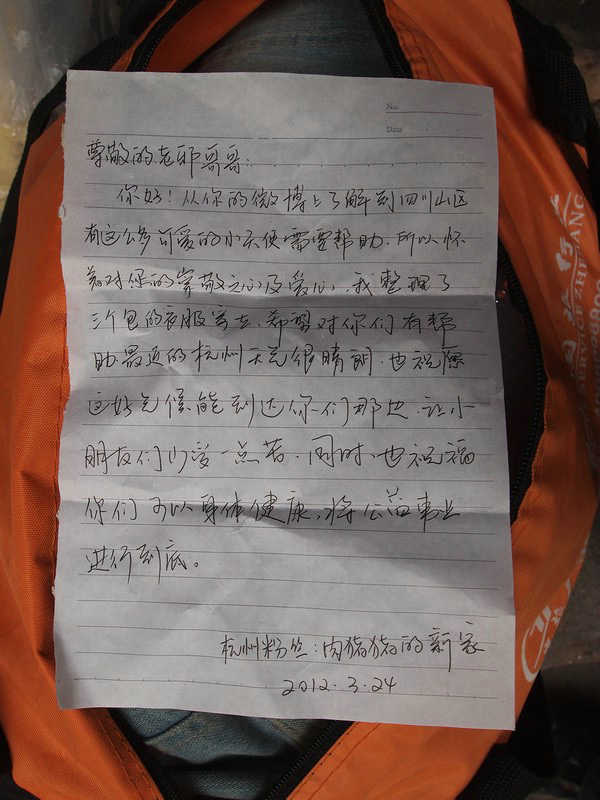 No.
Date
尊敬的老邪哥哥:
你好!从你的微博上了解到四川山区
有这么多可爱的小天使需要帮助.所以怀
着对你的崇敬之心及爱心,我整理了
三个包的衣服寄去,希望对你们有帮
助.最近的杭州天气很晴朗.也祝愿
这好气候能到达你们那边.让小
朋友们少受一点苦.同时,也祝福
你们可以身体健康,将公益事业
进行到底。
杭州粉丝:肉猪猪的新家
2012.3.24